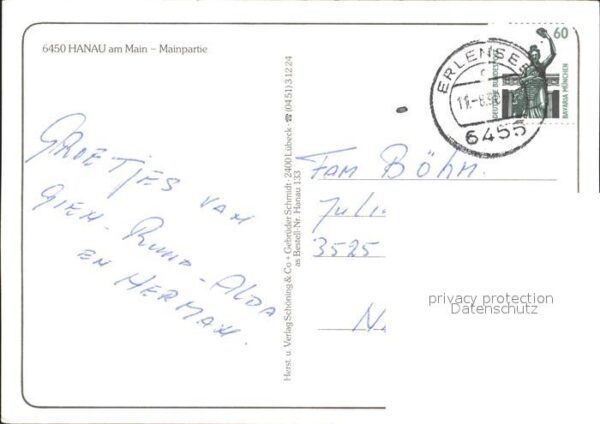 6450 HANAU am Main – Mainpartie
60
DEUTSCHE BUNDESPOST
BAVARIA MÜNCHEN
ERLENSEE
c
11.-8.90
6455
GROETJES VAN
GIEN - RUUD - ALDA
EN HERMAN.
Herst. u. Verlag Schöning & Co + Gebrüder Schmidt · 2400 Lübeck · ☎ (0451) 31224
as Bestell-Nr. Hanau 133
Fam Böhm.
Juli
3525
N
privacy protection
Datenschutz